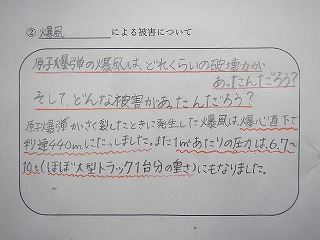 ② 爆風 による被害について
原子爆弾の爆風は、どれくらいの破壊力が
あったんだろう?
そして、どんな被害があったんだろう?
原子爆弾がさく裂したときに発生した爆風は爆心直下で
秒速440mにたっしました。また1m²あたりの圧力は6.7〜
10t(ほぼ大型トラック1台分の重さ)にもなりました。